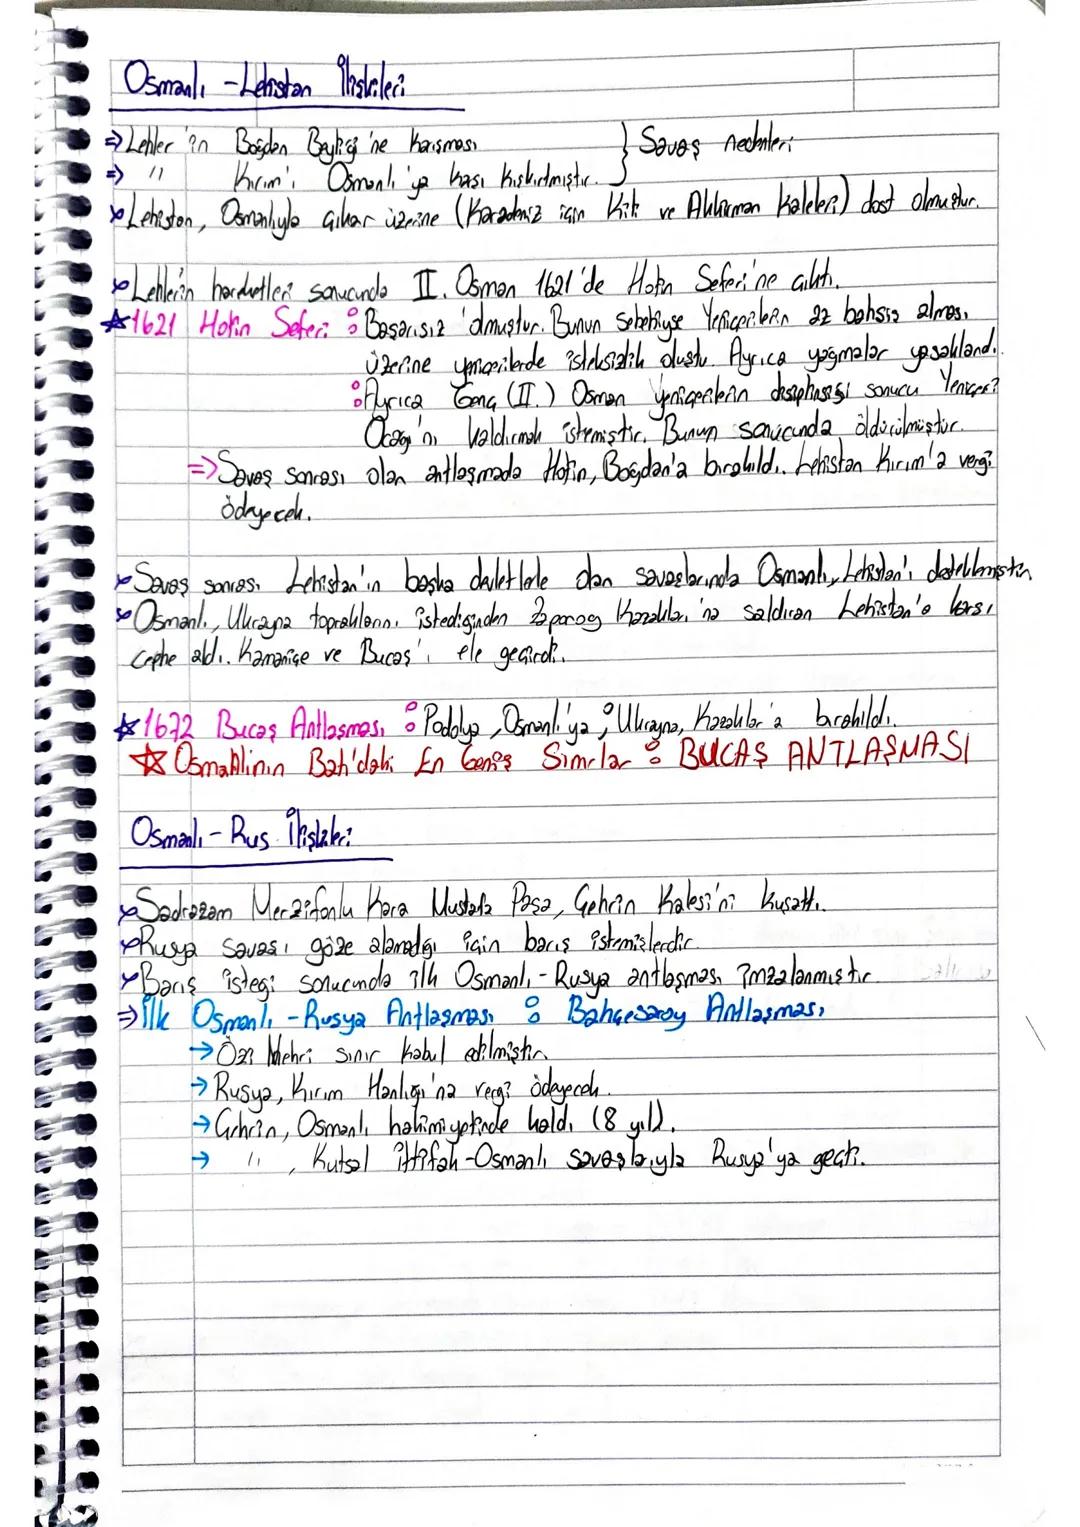 Osmanlı - Lehistan İlişkileri
⇒ Lehler'in Boğdan Beyliği'ne Karışması } Savaş nedenleri
⇒ " Kırım'ı Osmanlı'ya karşı kışkırtmıştır.
Lehistan, Osmanlıyla çıkar üzerine (Karadeniz için Kili ve Akkirman Kaleleri) dost olmuştur.
Lehlerin hareketleri sonucunda II. Osman 1621'de Hotin Seferi'ne çıktı.
☆1621 Hotin Seferi : Başarısız olmuştur. Bunun sebebiyse Yeniçerilerin az bahşiş alması
üzerine yeniçerilerde isteksizlik oluştu. Ayrıca yağmalar yasaklandı.
: Ayrıca Genç (II.) Osman Yeniçerilerin disiplinsizliği sonucu Yeniçeri
Ocağı'nı kaldırmak istemiştir. Bunun sonucunda öldürülmüştür.
⇒ Savaş sonrası olan antlaşmada Hotin, Boğdan'a bırakıldı. Lehistan Kırım'a vergi
ödeyecek.
Savaş sonrası Lehistan'ın başka devletlerle olan savaşlarında Osmanlı, Lehistan'ı desteklemiştir
Osmanlı, Ukrayna topraklarını istediğinden Zaporog Kazakları'na saldıran Lehistan'a karşı
cephe aldı. Kamaniçe ve Bucaş'ı ele geçirdi.
☆1672 Bucaş Antlaşması : Podolya, Osmanlı'ya ; Ukrayna, Kazaklar'a bırakıldı.
☆ Osmanlının Batı'daki En Geniş Sınırlar : BUCAŞ ANTLAŞMASI
Osmanlı - Rus İlişkileri
Sadrazam Merzifonlu Kara Mustafa Paşa, Çehrin Kalesi'ni kuşattı.
Rusya savaşı göze alamadığı için barış istemişlerdir.
Barış isteği sonucunda ilk Osmanlı - Rusya antlaşması imzalanmıştır.
⇒ İlk Osmanlı - Rusya Antlaşması : Bahçesaray Antlaşması
→ Özi Nehri sınır kabul edilmiştir.
→ Rusya, Kırım Hanlığı'na vergi ödeyecek.
→ Çehrin, Osmanlı hakimiyetinde kaldı (8 yıl).
→ " , Kutsal ittifak - Osmanlı savaşlarıyla Rusya'ya geçti.